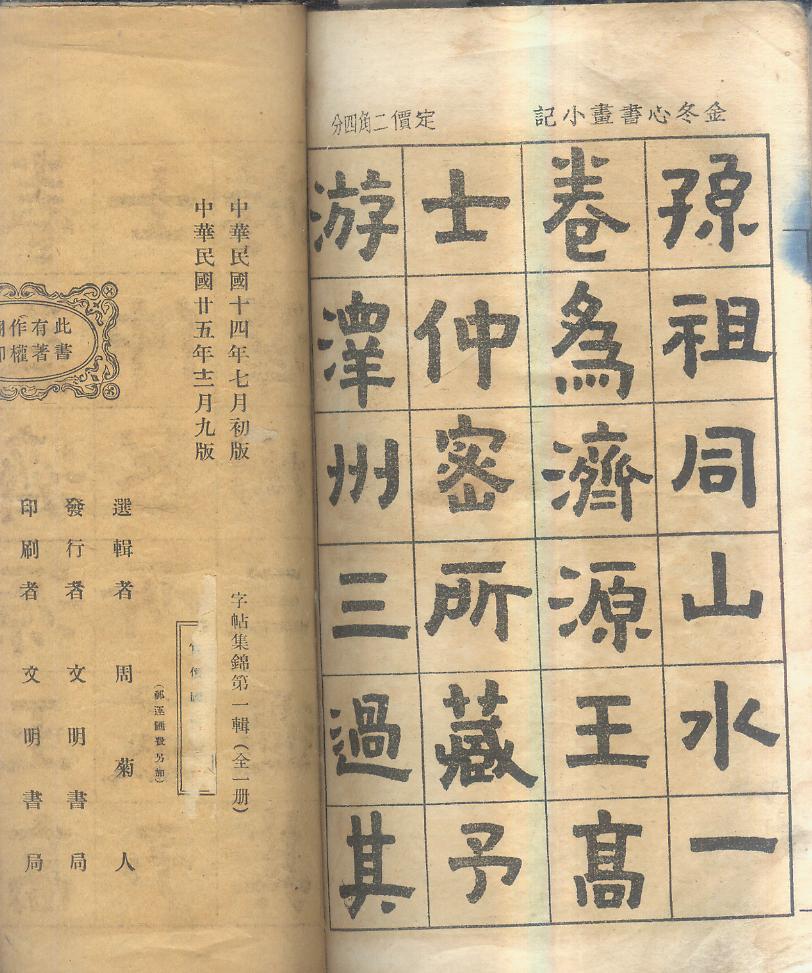 金冬心書畫小記
定價二角四分
孫祖同山水一
卷為濟源王高
士仲密所藏予
游澤州三過其
中華民國十四年七月初版
中華民國廿五年十二月九版
字帖集錦第一輯（全一册）
（郵運匯費另加）
選輯者 周菊人
發行者 文明書局
印刷者 文明書局
此書
有著
作權